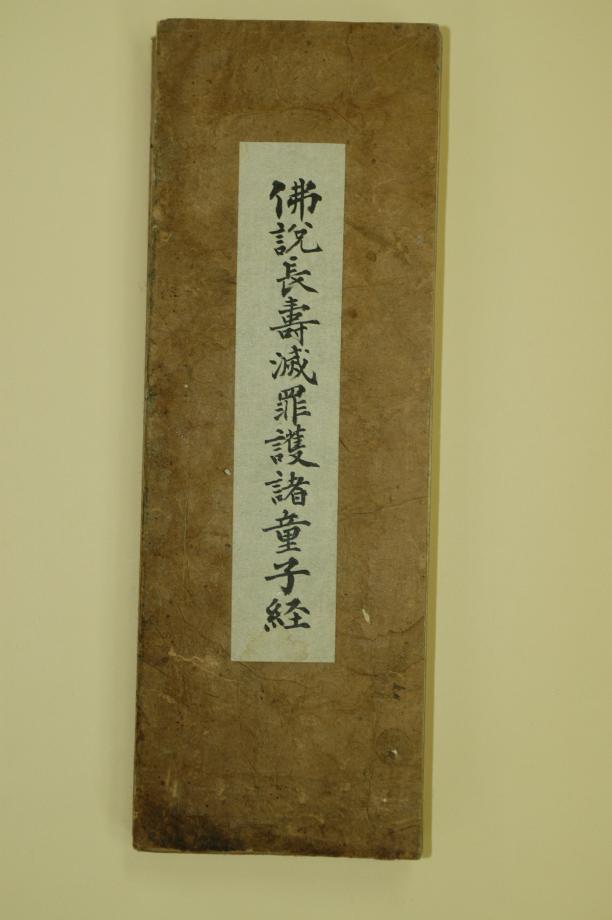 佛説長壽滅罪護諸童子経